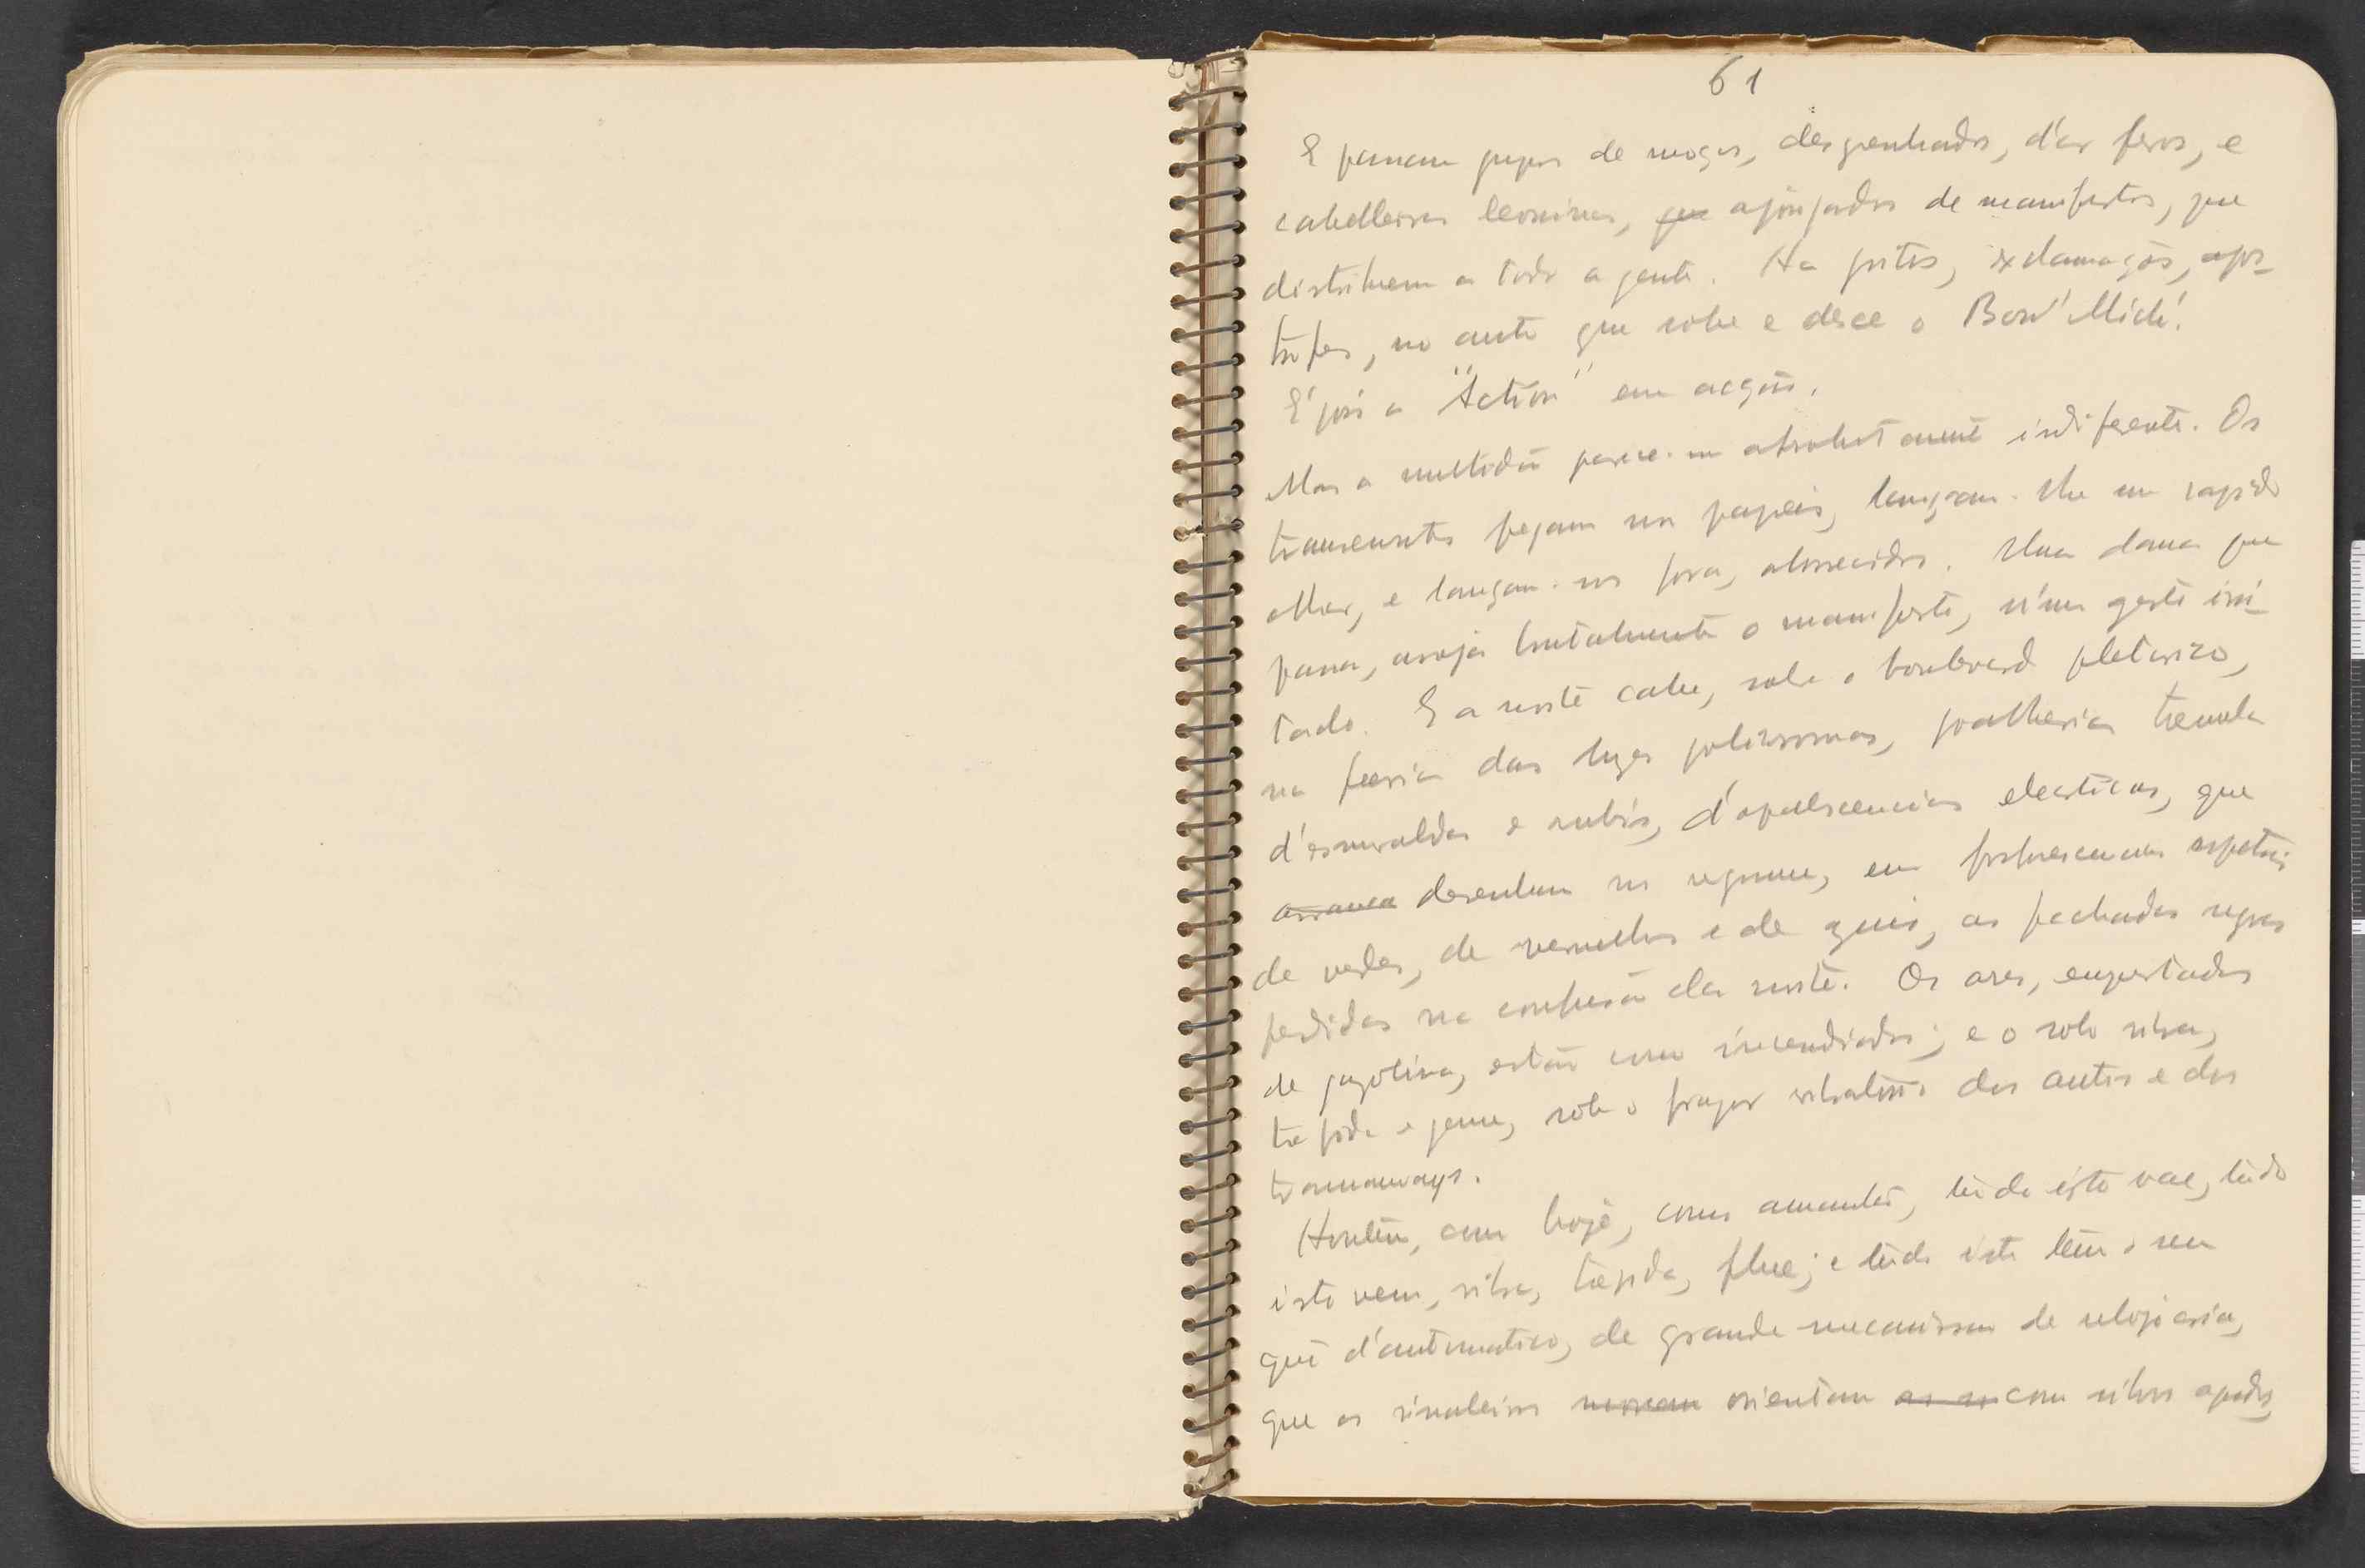 61
E passam grupos de moços, desgrenhados, d'ar feroz, e
cabelleiras leoninas, que ajoujados de manifestos, que
distribuem a toda a gente. Ha gritos, exclamações, após-
trofes, no auto que sobe e desce o Boul' Mich'.
E' pois a "Action" em acção.
Mas a multidão parece-me absolutamente indiferente. Os
transeuntes pegam nos papeis, lançam-lhe um rapido
olhar, e lançam-nos fora, aborrecidos. Uma dama que
passa, arroja brutalmente o manifesto, n'um gesto irri-
tado. E a noite cahe, sobre o boulevard pletorico,
na feeria das luzes policromas, joalheria tremula
d'esmeraldas e rubis, d'opalescencias electricas, que
arranca desenham no negrume, em fosforescencias espectrais
de verdes, de vermelhos e de azuis, as fachadas negras
perdidas na confusão da noite. Os ares, empestados
de gazolina, estão como incendiados; e o solo vibra,
trepida e geme, sob o fragor vibratorio dos autos e dos
tramways.
Hontem, como hoje, como amanhã, tudo isto vae, tudo
isto vem, vibra, trepida, flue; e tudo isto tem o seu
quê d'automatico, de grande mecanismo de relojoaria,
que os sinaleiros movem orientam com silvos agudos,